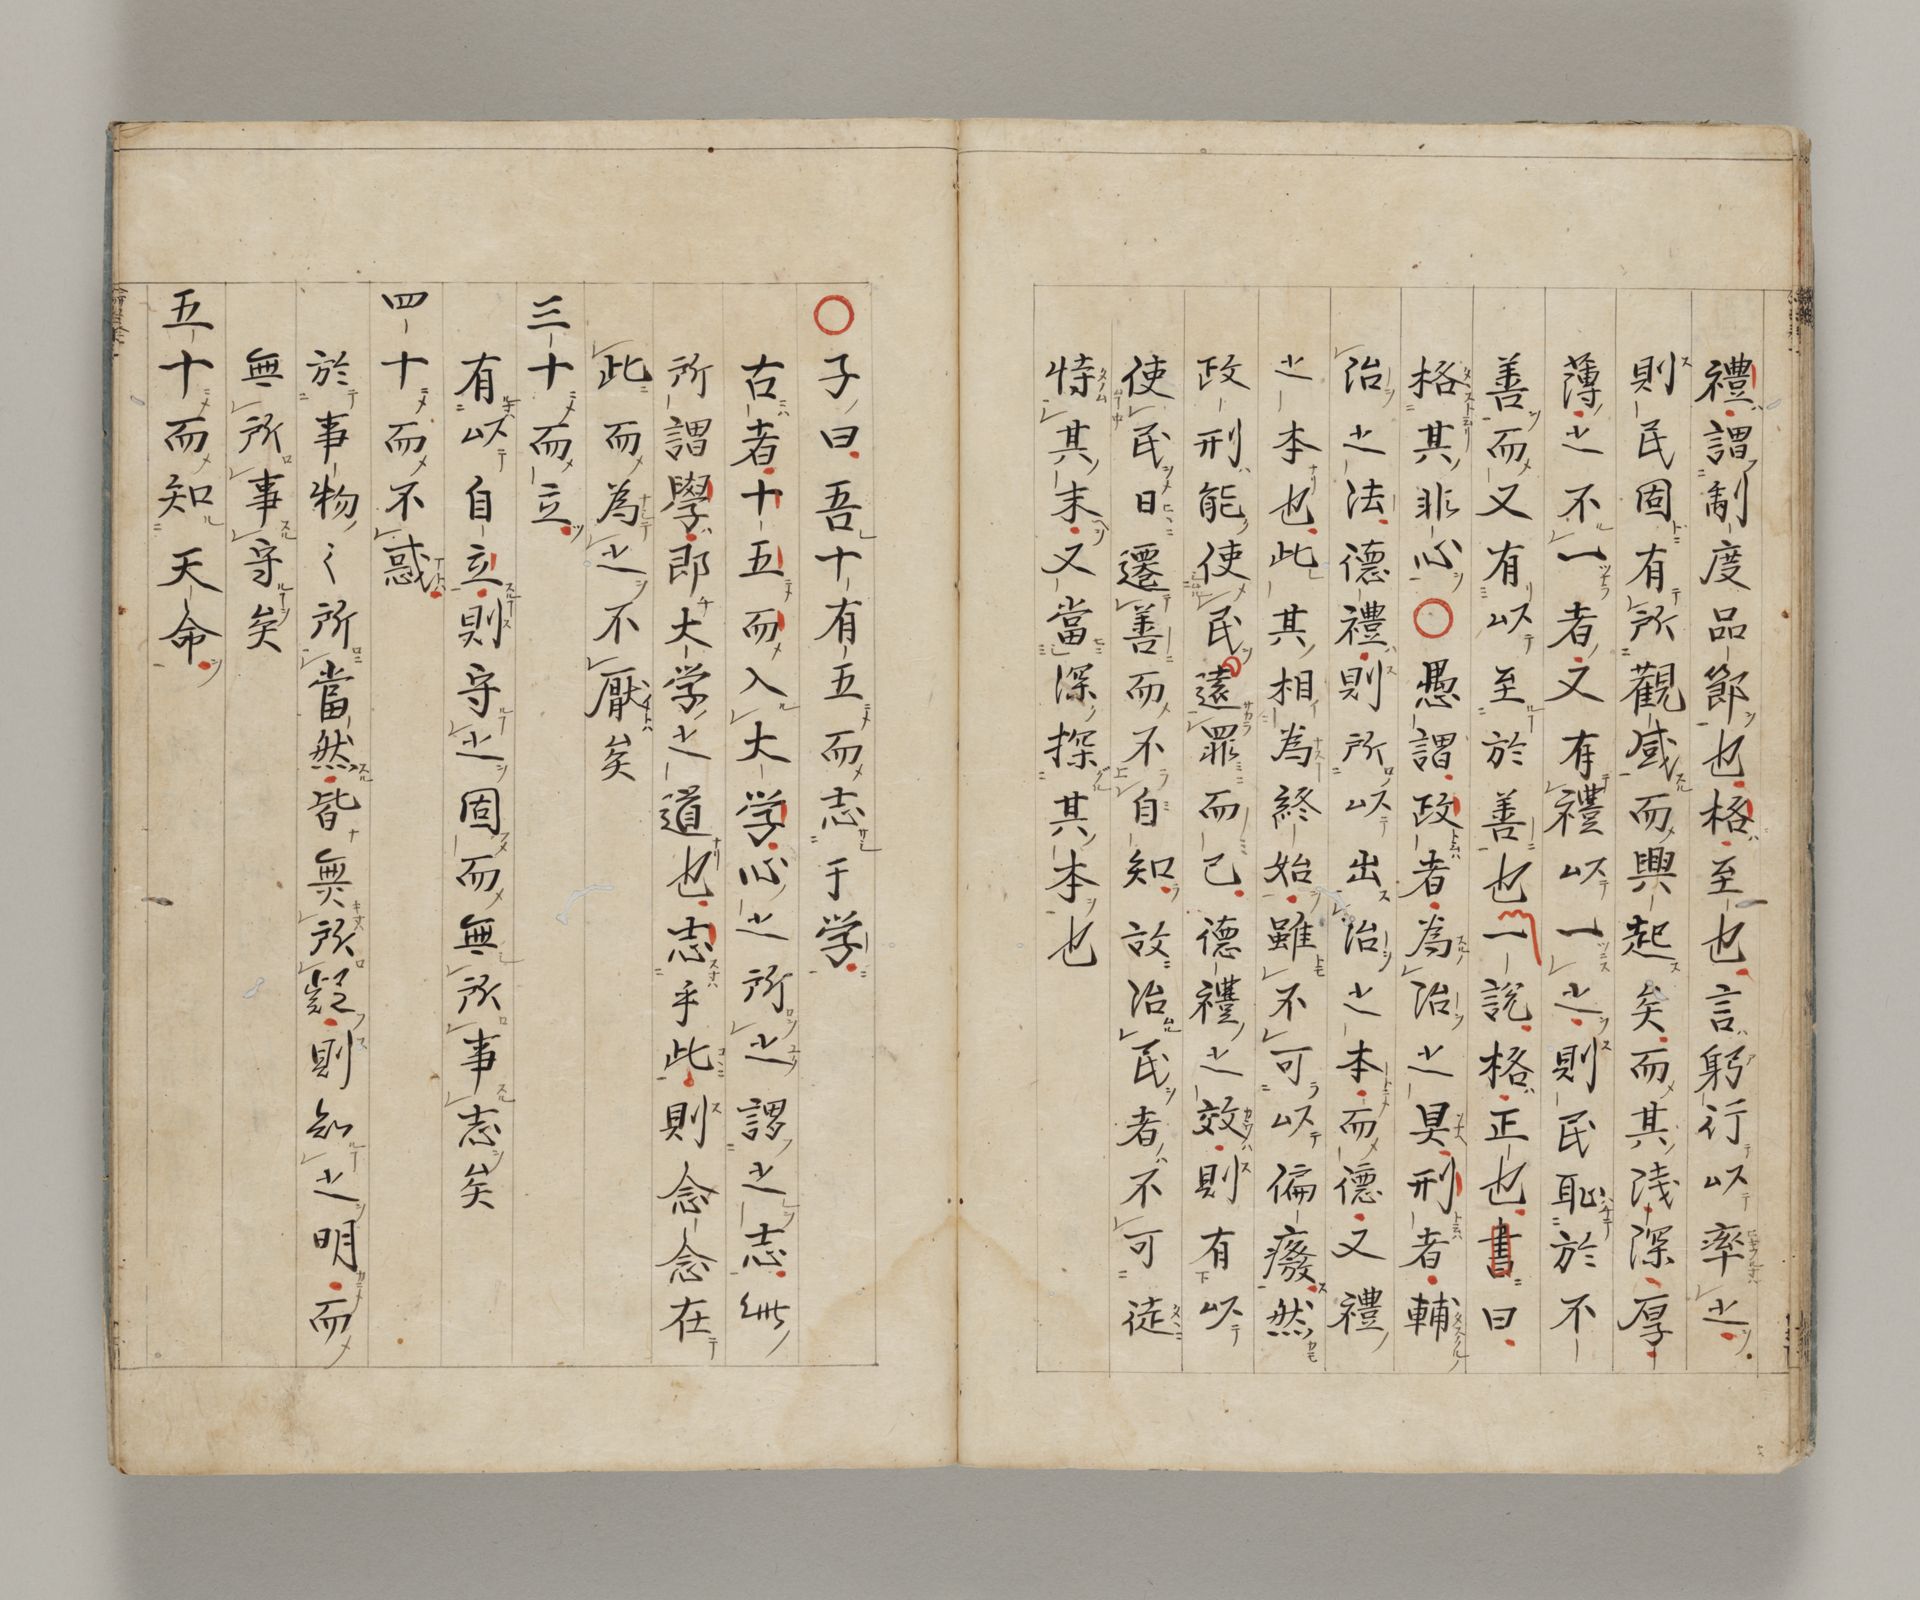 禮謂制度品節也格至也言躬行以率之
則民固有所觀感而興起矣而其浅深厚
薄之不一者又有禮以一之則民恥於不
善而又有以至於善也一說格正也書曰
格其非心○愚謂政者為治之具刑者輔
治之法德禮則所以出治之本而德又禮
之本也此其相為終始雖不可以偏癈然
政刑能使民遠罪而已德禮之效則有以
使民日遷善而不自知故治民者不可徒
恃其末又當深探其本也
○子曰吾十有五而志于学
古者十五而入大学心之所之謂之志此
所謂學即大学之道也志乎此則念念在
此而為之不厭矣
三十而立
有以自立則守之固而無所事志矣
四十而不惑
於事物之所當然皆無所疑則知之明而
無所事守矣
五十而知天命